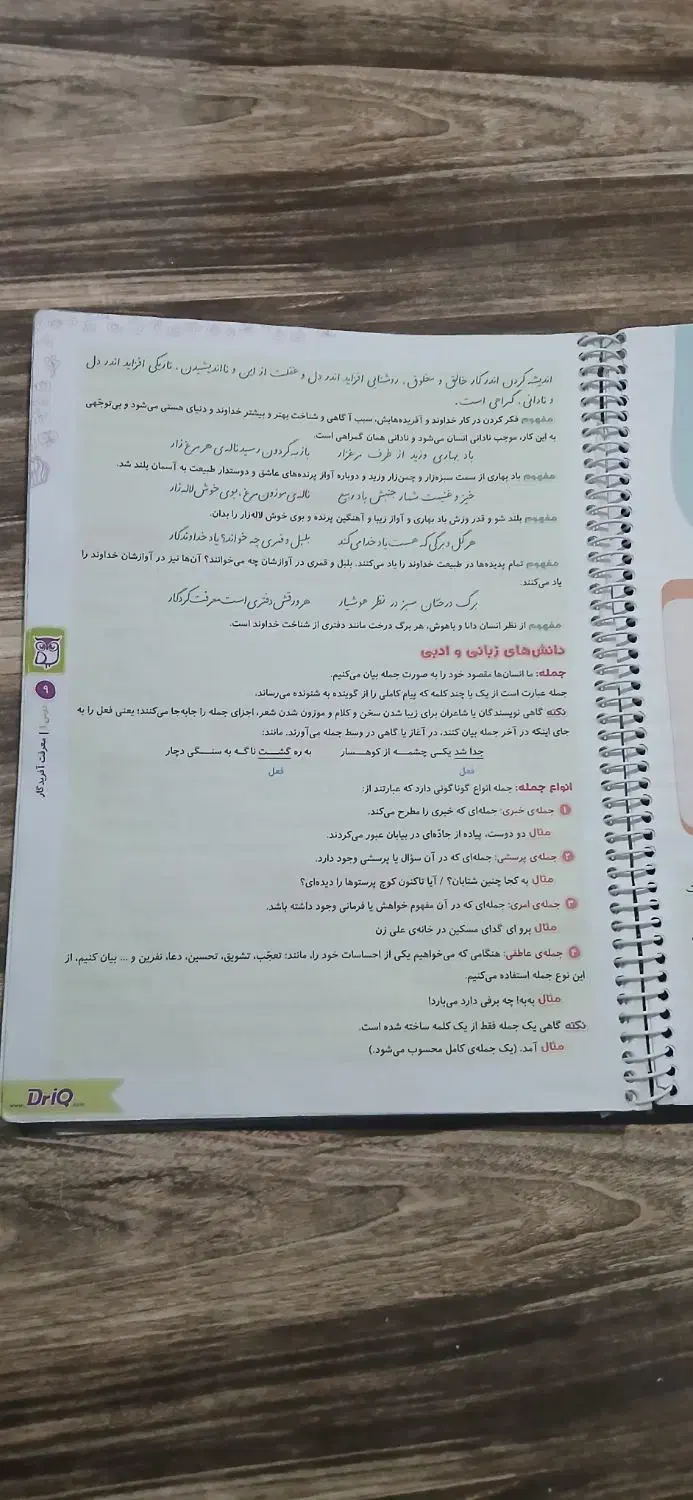 اندیشه کردن اندر کار خالق و مخلوق، روشنایی افزاید اندر دل و غفلت از این و نااندیشیدن، تاریکی افزاید اندر دل
و نادانی، گمراهی است.
مفهوم فکر کردن در کار خداوند و آفریده‌هایش، سبب آگاهی و شناخت بهتر و بیشتر خداوند و دنیای هستی می‌شود و بی‌توجّهی
به این کار، موجب نادانی انسان می‌شود و نادانی همان گمراهی است.
باد بهاری وزید از طرف مرغزار بازبه گردون رسید ناله‌ی هر مرغ زار
مفهوم باد بهاری از سمت سبزه‌زار و چمن‌زار وزید و دوباره آواز پرنده‌های عاشق و دوستدار طبیعت به آسمان بلند شد.
خیز و غنیمت شمار جنبش باد ربیع ناله‌ی موزون مرغ، بوی خوش لاله‌زار
مفهوم بلند شو و قدر وزش باد بهاری و آواز زیبا و آهنگین پرنده و بوی خوش لاله‌زار را بدان.
هر گل و برگی که هست یاد خدا می‌کند بلبل و قمری چه خواند؟ یاد خداوندگار
مفهوم تمام پدیده‌ها در طبیعت خداوند را یاد می‌کنند. بلبل و قمری در آوازشان چه می‌خوانند؟ آن‌ها نیز در آوازشان خداوند را
یاد می‌کنند.
برگ درختان سبز در نظر هوشیار هر ورقش دفتری است معرفت کردگار
مفهوم از نظر انسان دانا و باهوش، هر برگ درخت مانند دفتری از شناخت خداوند است.
دانش‌های زبانی و ادبی
جمله: ما انسان‌ها مقصود خود را به صورت جمله بیان می‌کنیم.
جمله عبارت است از یک یا چند کلمه که پیام کاملی را از گوینده به شنونده می‌رساند.
نکته گاهی نویسندگان یا شاعران برای زیبا شدن سخن و کلام و موزون شدن شعر، اجزای جمله را جابه‌جا می‌کنند؛ یعنی فعل را به
جای اینکه در آخر جمله بیان کنند، در آغاز یا گاهی در وسط جمله می‌آورند. مانند:
جدا شد یکی چشمه از کوهسار به ره گشت ناگه به سنگی دچار
فعل فعل
انواع جمله: جمله انواع گوناگونی دارد که عبارتند از:
۱ جمله‌ی خبری: جمله‌ای که خبری را مطرح می‌کند.
مثال دو دوست، پیاده از جاده‌ای در بیابان عبور می‌کردند.
۲ جمله‌ی پرسشی: جمله‌ای که در آن سؤال یا پرسشی وجود دارد.
مثال به کجا چنین شتابان؟ / آیا تاکنون کوچ پرستوها را دیده‌ای؟
۳ جمله‌ی امری: جمله‌ای که در آن مفهوم خواهش یا فرمانی وجود داشته باشد.
مثال برو ای گدای مسکین در خانه‌ی علی زن
۴ جمله‌ی عاطفی: هنگامی که می‌خواهیم یکی از احساسات خود را، مانند: تعجّب، تشویق، تحسین، دعا، نفرین و ... بیان کنیم، از
این نوع جمله استفاده می‌کنیم.
مثال به‌به! چه برفی دارد می‌بارد!
نکته گاهی یک جمله فقط از یک کلمه ساخته شده است.
مثال آمد. (یک جمله‌ی کامل محسوب می‌شود.)
۹
درس ۱ | معرفت آفریدگار
www.DriQ.com